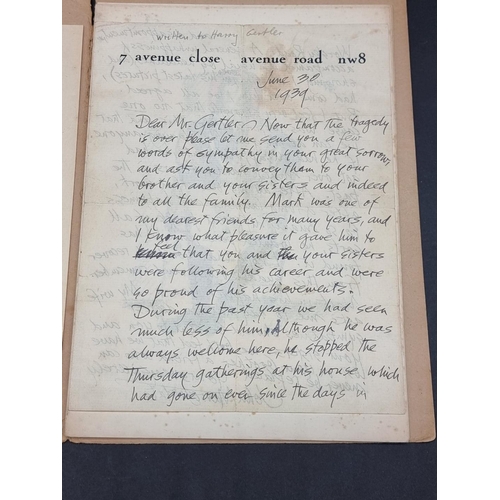 written to Harry Gertler
7 avenue close avenue road nw8
June 30
1939
Dear Mr. Gertler, Now that the tragedy
is over please let me send you a few
words of sympathy in your great sorrow,
and ask you to convey them to your
brother and your sisters and indeed
to all the family. Mark was one of
my dearest friends for many years, and
I know what pleasure it gave him to
feel that you and your sisters
were following his career and were
so proud of his achievements.
During the past year we had seen
much less of him, Although he was
always welcome here, he stopped the
Thursday gatherings at his house which
had gone on ever since the days in